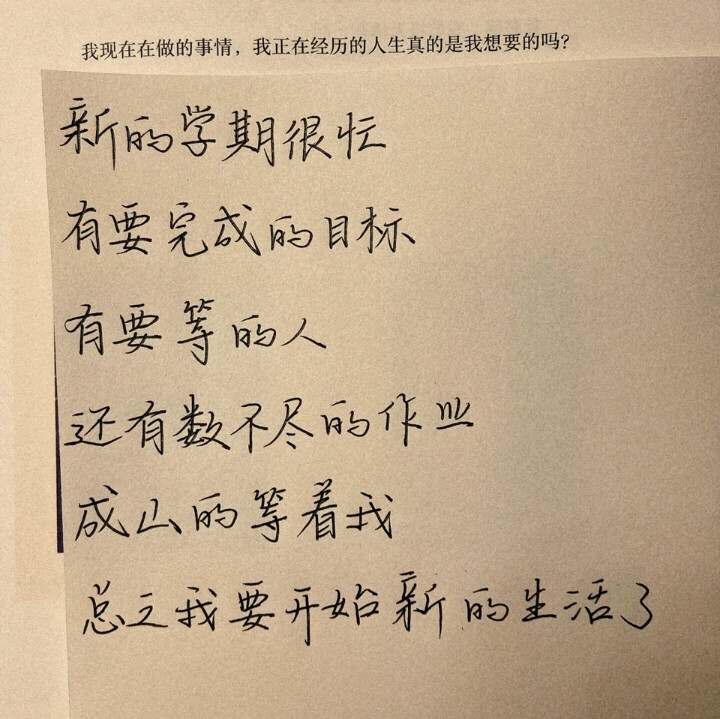 我现在在做的事情，我正在经历的人生真的是我想要的吗？
新的学期很忙
有要完成的目标
有要等的人
还有数不尽的作业
成山的等着我
总之我要开始新的生活了